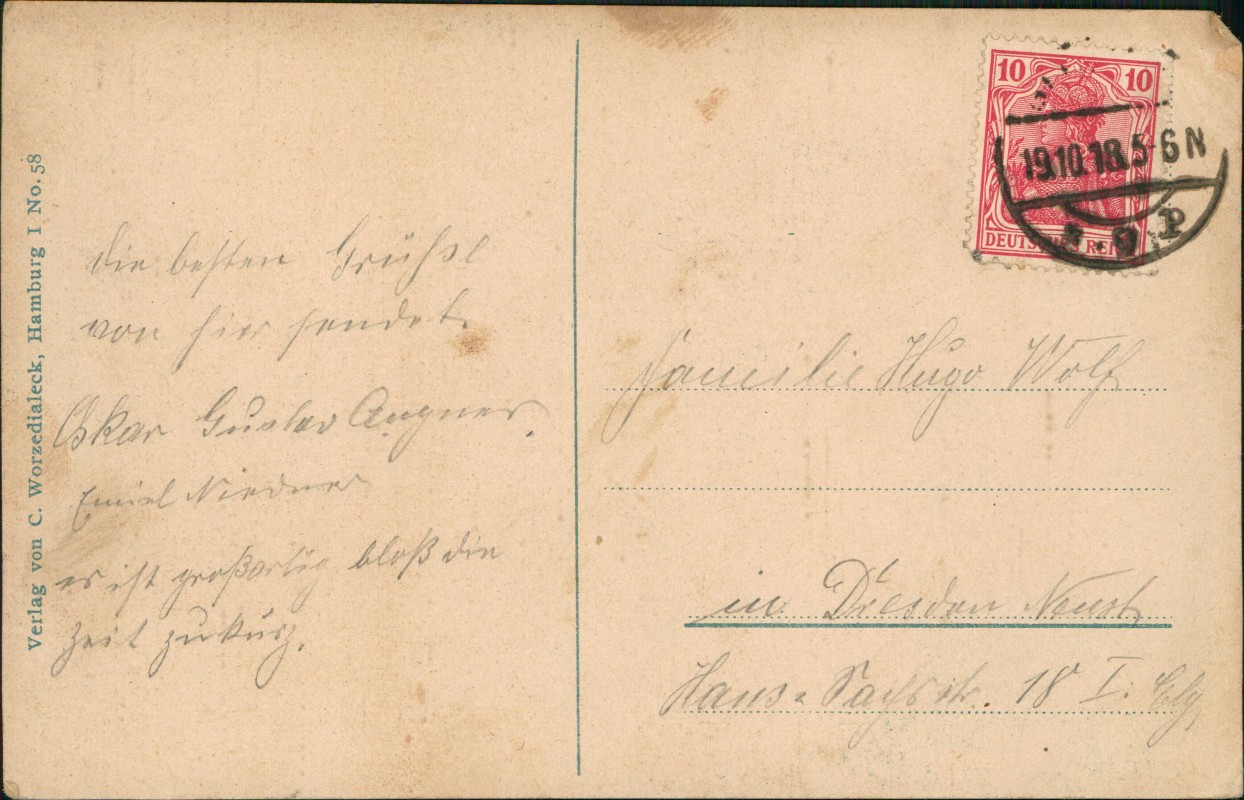 Verlag von C. Worzedialeck, Hamburg 1 No. 58
die besten Grüße
von hier sendet
Oskar Gustav
Emiel Niedner
es ist großartig bloß die
Zeit zu kurz.
10 10
DEUTSCHES REICH
19.10.18.5-6 N
Familie Hugo Wolf
in Dresden Neust.
Hans-Sachsstr. 18 I.